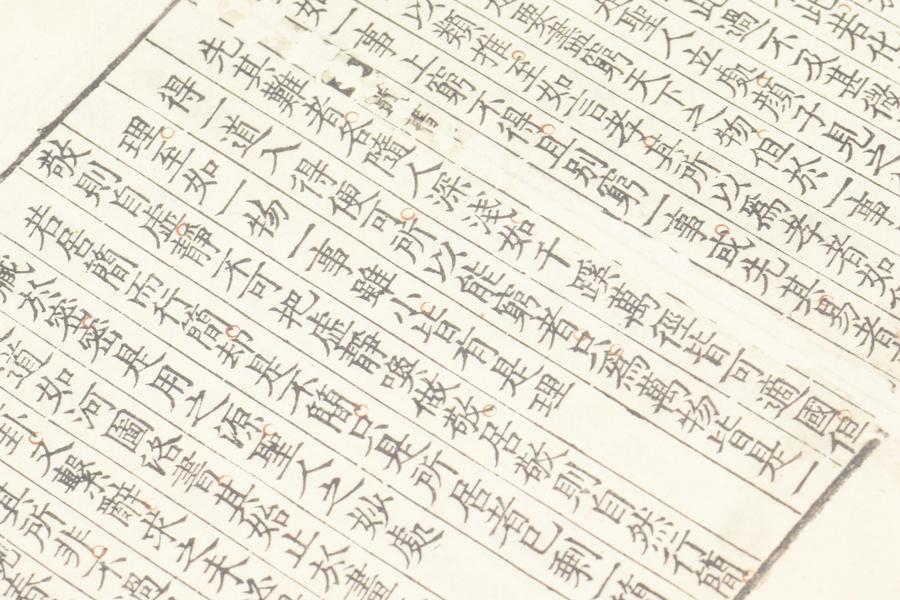 此若化
此過不及甚微
聖人立
顏子見之
要盡窮天下之物但於一事
以類推至如言孝其所以為孝者如
如一事上窮不得且別窮一事或先其易者
先其難者各隨人深淺如千蹊萬徑皆可適國但
得一道入得便可所以能窮者只為萬物皆是一
理至如一物一事雖小皆有是理
敬則自虛靜不可把虛靜喚做敬居敬則自然行簡
若居簡而行簡却是不簡只是所居者已剩一簡
藏於密密是用之源聖人之妙處
道如河圖洛書其始止於畫
又繫辭求之未必
其所非不過